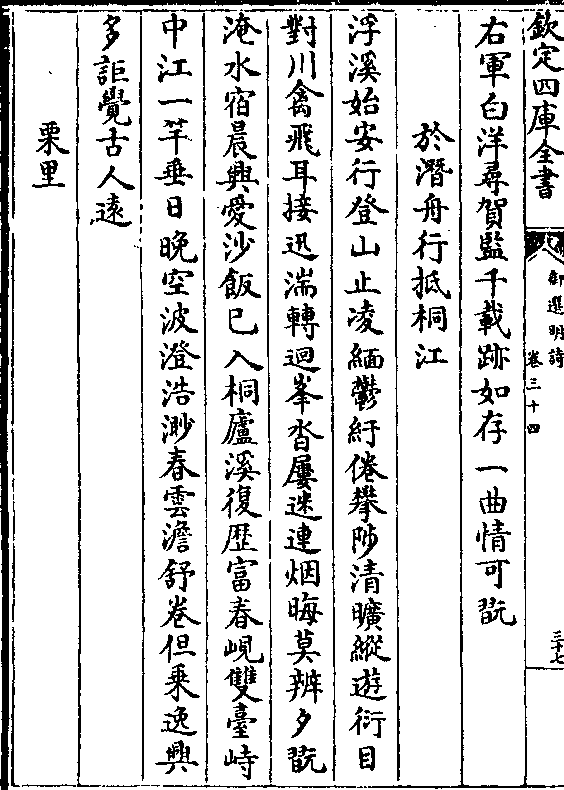 欽定四庫全書
御選明詩
卷三十四
三十七
右軍白洋尋賀監千載跡如存一曲情可翫
於潛舟行抵桐江
浮溪始安行登山止凌緬鬱紆倦攀陟清曠縱遊衍目
對川禽飛耳接迅湍轉迴峯沓屢迷連烟晦莫辨夕翫
淹水宿晨興愛沙飯已入桐廬溪復歴富春峴雙臺峙
中江一竿垂日晚空波澄浩渺春雲澹舒卷但乗逸興
多詎覺古人遠
栗里